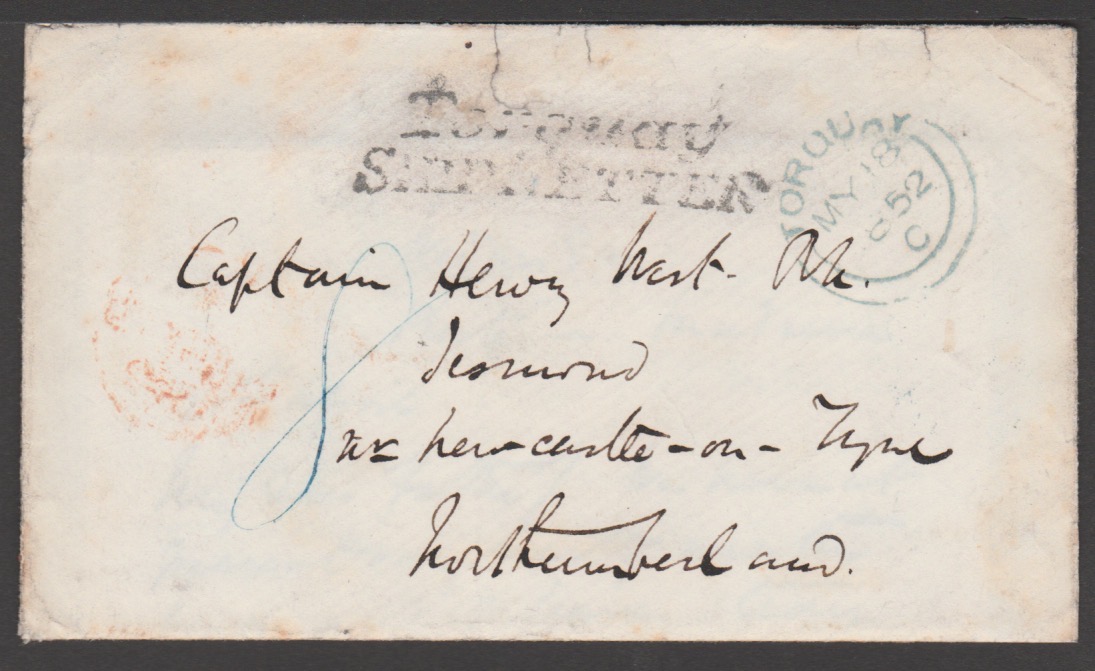 Torquay
SHIP LETTER
TORQUAY
MY 18
1852
C
8
Captain Henry West. RN.
Jesmond
nr Newcastle-on-Tyne
Northumberland.